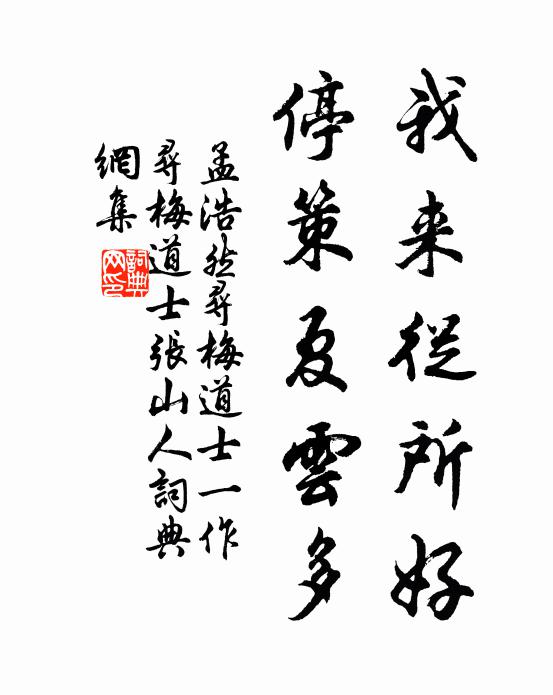 我来從所好
停策夏雲多
孟浩然尋梅道士一作
尋梅道士張山人詞典
網集
詞典網印